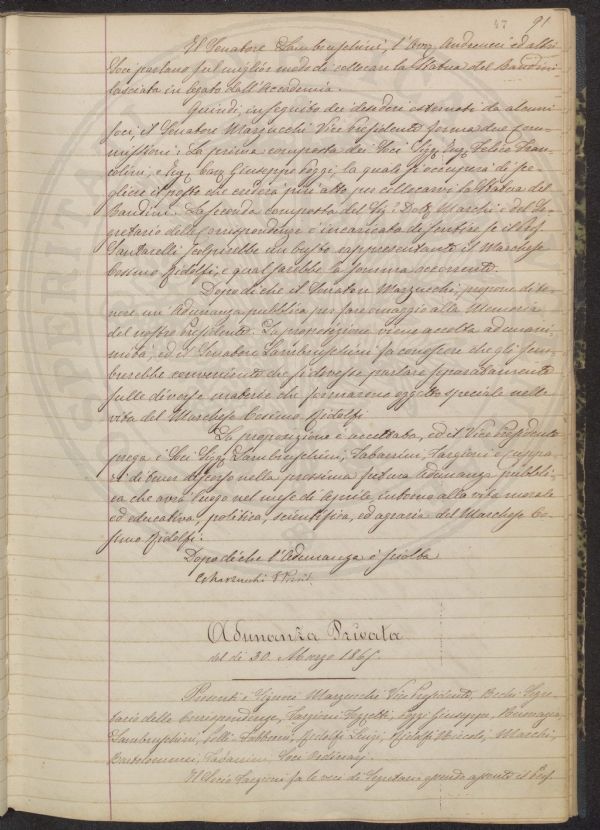 47 91
Il Senatore Lambruschini, l'Avv. Andreucci ed altri
Soci parlano sul miglior modo di collocare la Statua del Bandini
lasciata in legato dall'Accademia.
Quindi, in seguito dei desideri esternati da alcuni
soci, il Senatore Marzucchi Vice Presidente forma due Com-
missioni: La prima composta dei Soci Sigg. Ing. Felice Fran-
colini, e Sig. Cav. Giuseppe Poggi, la quale si occuperà di sce-
gliere il posto che crederà più atto per collocarvi la Statua del
Bandini. La seconda composta del Sig. Dott. Marchi e del Se-
gretario delle Corrispondenze è incaricata di sentire se il Prof.
Santarelli scolpirebbe un busto rappresentante il Marchese
Cosimo Ridolfi, e qual sarebbe la somma occorrente.
Dopo di che il Senatore Marzucchi propone di te-
nere un'Adunanza pubblica per fare omaggio alla Memoria
del nostro Presidente. La proposizione viene accolta ad unani-
mità, ed il Senatore Lambruschini fa conoscere che gli sem-
brerebbe conveniente che si dovesse parlare separatamente
sulle diverse materie che formarono oggetto speciale nella
vita del Marchese Cosimo Ridolfi.
La proposizione è accettata, ed il Vice Presidente
prega i Soci Sigg. Lambruschini, Tabarrini, Targioni e
di tener discorso nella prossima futura Adunanza pubbli-
ca che avrà luogo nel mese di Aprile, intorno alla vita morale
ed educativa, politica, scientifica, ed agraria del Marchese Co-
simo Ridolfi.
Dopo di che l'Adunanza è sciolta
C. Marzucchi V. Presid.
Adunanza Privata
del dì 30. Marzo 1865.
Presenti i Signori Marzucchi Vice Presidente, Bechi Segre-
tario delle Corrispondenze, Targioni Tozzetti, Poggi Giuseppe,
Lambruschini, Ridolfi Luigi, Ridolfi Niccolò, Marchi,
Bartolommei, Tabarrini, Soci Ordinarj.
Il Socio Targioni fa le veci di Segretario